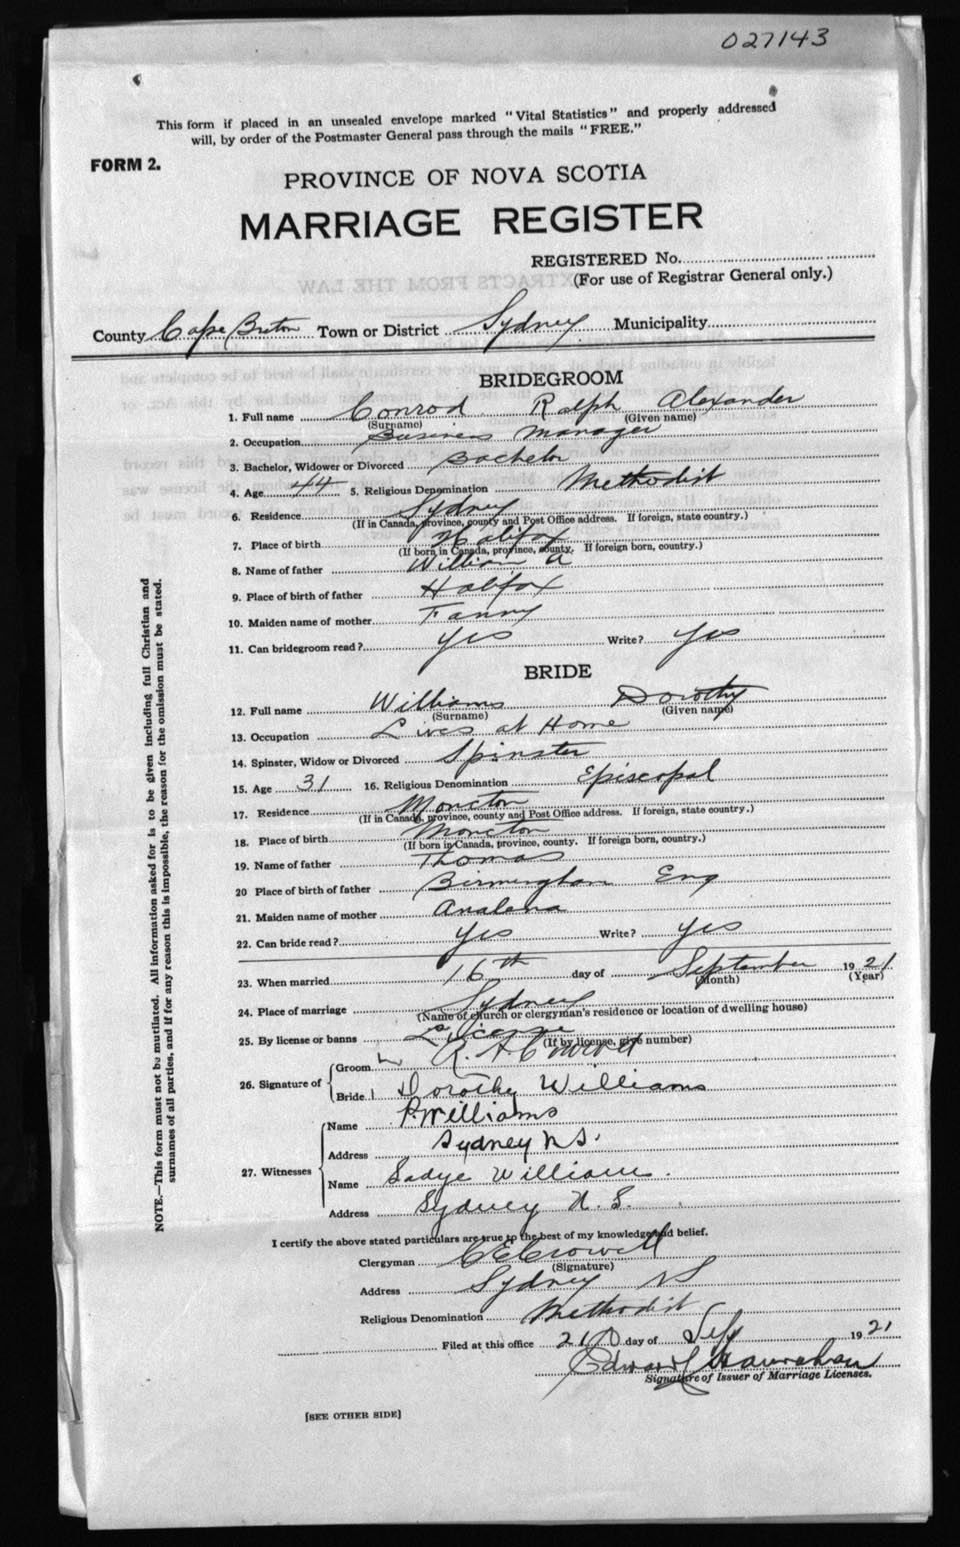 027143
This form if placed in an unsealed envelope marked "Vital Statistics" and properly addressed
will, by order of the Postmaster General pass through the mails "FREE."
FORM 2.
PROVINCE OF NOVA SCOTIA
MARRIAGE REGISTER
REGISTERED No.
(For use of Registrar General only.)
County Cape Breton Town or District Sydney Municipality
BRIDEGROOM
1. Full name Conrod Ralph Alexander
(Surname) (Given name)
2. Occupation Business Manager
3. Bachelor, Widower or Divorced Bachelor
4. Age 44 5. Religious Denomination Methodist
6. Residence Sydney
(If in Canada, province, county and Post Office address. If foreign, state country.)
7. Place of birth Halifax
(If born in Canada, province, county. If foreign born, country.)
8. Name of father William A
9. Place of birth of father Halifax
10. Maiden name of mother Fanny
11. Can bridegroom read? Yes Write? Yes
BRIDE
12. Full name Williams Dorothy
(Surname) (Given name)
13. Occupation Lives at Home
14. Spinster, Widow or Divorced Spinster
15. Age 31 16. Religious Denomination Episcopal
17. Residence Moncton
(If in Canada, province, county and Post Office address. If foreign, state country.)
18. Place of birth Moncton
(If born in Canada, province, county. If foreign born, country.)
19. Name of father Thomas
20 Place of birth of father Birmingham Eng
21. Maiden name of mother Analena
22. Can bride read? Yes Write? Yes
23. When married 16th day of September 1921
(Month) (Year)
24. Place of marriage Sydney
(Name of church or clergyman's residence or location of dwelling house)
25. By license or banns License
(If by license, give number)
26. Signature of Groom R. A Conrod
Bride Dorothy Williams
27. Witnesses Name P. Williams
Address Sydney N S.
Name Sadye Williams.
Address Sydney N. S.
I certify the above stated particulars are true to the best of my knowledge and belief.
Clergyman C E Crowell
(Signature)
Address Sydney N S
Religious Denomination Methodist
Filed at this office 21 day of Sep 1921
Edward Hanrahan
Signature of Issuer of Marriage Licenses.
[SEE OTHER SIDE]
NOTE.—This form must not be mutilated. All information asked for is to be given including full Christian and
surnames of all parties, and if for any reason this is impossible, the reason for the omission must be stated.